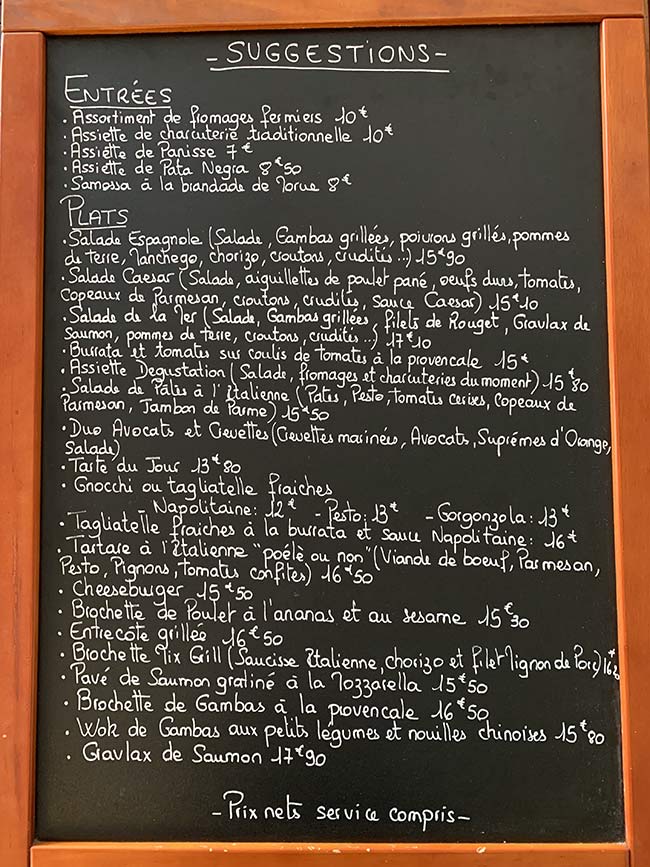 - SUGGESTIONS -
ENTRÉES
. Assortiment de fromages fermiers 10€
. Assiette de charcuterie traditionnelle 10€
. Assiette de Panisse 7€
. Assiette de Pata Negra 8€50
. Samossa à la brandade de Morue 8€
PLATS
. Salade Espagnole (Salade, Gambas grillées, poivrons grillés, pommes
de terre, Manchego, chorizo, croutons, crudités...) 15€90
. Salade Caesar (Salade, aiguillettes de poulet pané, oeufs durs, tomates,
Copeaux de Parmesan, croutons, crudités, sauce Caesar) 15€10
. Salade de la Mer (Salade, Gambas grillées, filets de Rouget, Gravlax de
Saumon, pommes de terre, croutons, crudités...) 17€10
. Burrata et tomates sur coulis de tomates à la provencale 15€
. Assiette Degustation (Salade, fromages et charcuteries du moment) 15€80
. Salade de Pâtes à l'Italienne (Pates, Pesto, tomates cerises, Copeaux de
Parmesan, Jambon de Parme) 15€50
. Duo Avocats et Crevettes (Crevettes marinées, Avocats, Suprémes d'Orange,
Salade)
. Tarte du Jour 13€80
. Gnocchi ou tagliatelle fraiches
- Napolitaine: 12€ - Pesto: 13€ - Gorgonzola: 13€
. Tagliatelle fraiches à la burrata et sauce Napolitaine: 16€
. Tartare à l'italienne "poélé ou non" (Viande de boeuf, Parmesan,
Pesto, Pignons, tomates confites) 16€50
. Cheeseburger 15€50
. Brochette de Poulet à l'ananas et au sesame 15€30
. Entrecôte grillée 16€50
. Brochette Mix Grill (Saucisse Italienne, chorizo et filet Mignon de Porc)
. Pavé de Saumon gratiné à la Mozzarella 15€50
. Brochette de Gambas à la provencale 16€50
. Wok de Gambas aux petits légumes et nouilles chinoises 15€80
. Gravlax de Saumon 17€90
- Prix nets service compris -